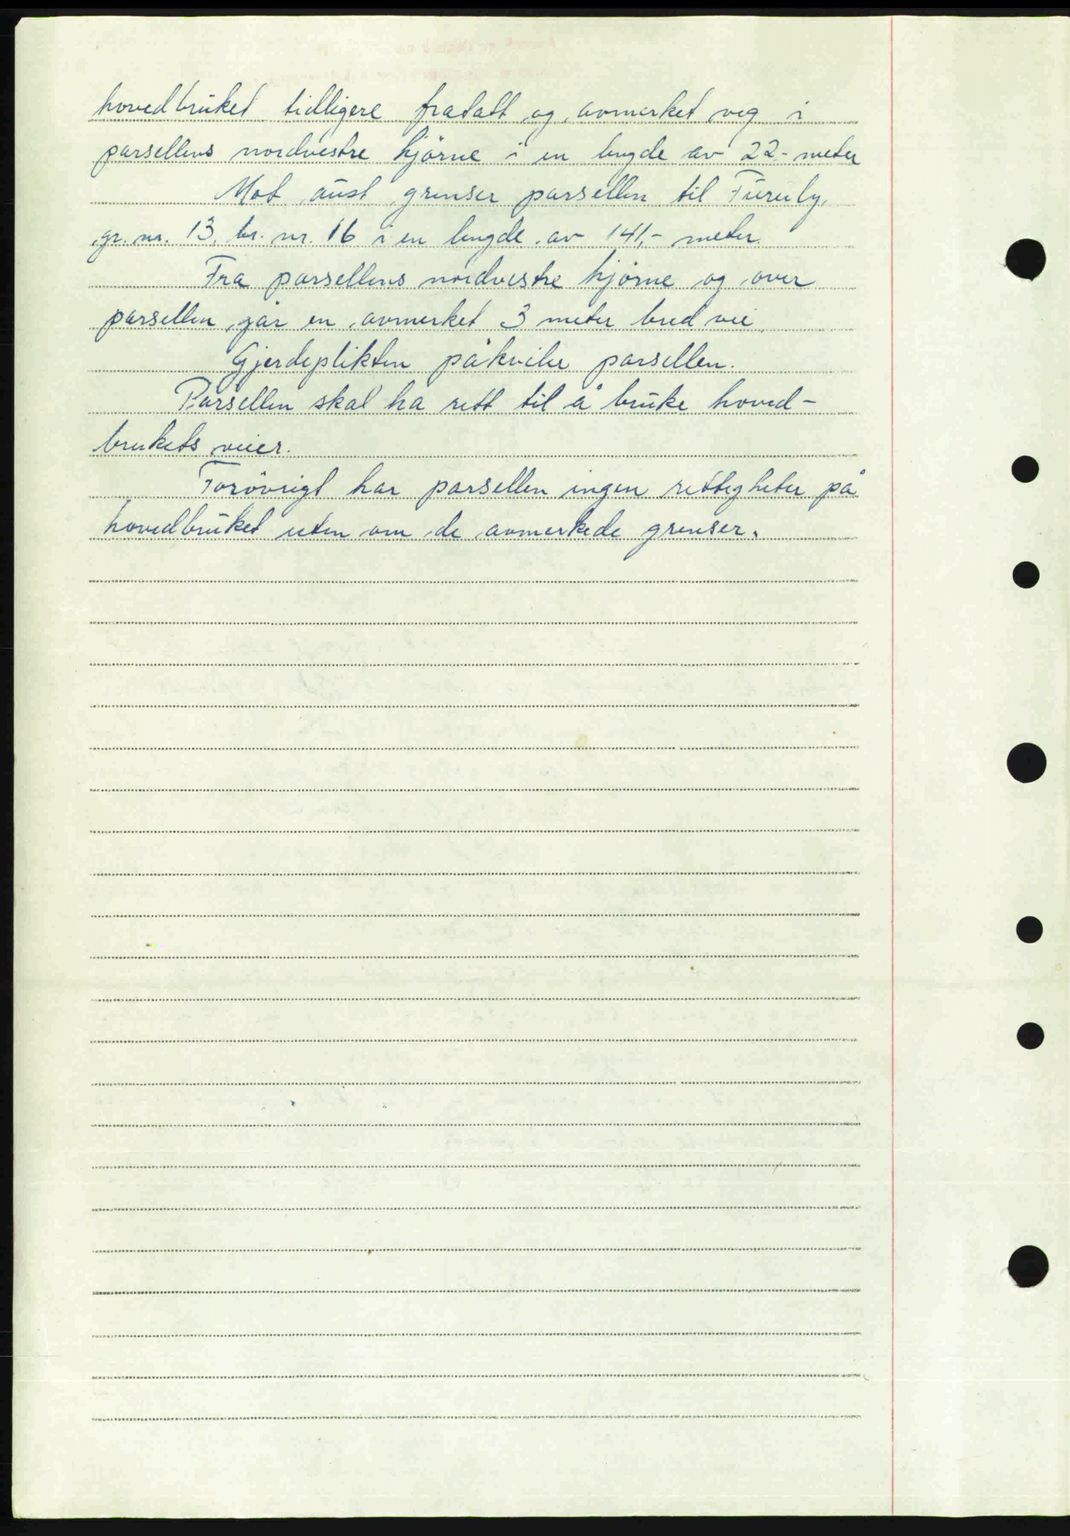 hovedbruket tidligere fratatt og avmerket veg i
parsellens nordvestre hjörne i en lengde av 22.- meter
Mot aust grenser parsellen til Furuly,
gr. nr. 13, br. nr. 16 i en lengde av 141,- meter.
Fra parsellens nordvestre hjörne og over
parsellen går en avmerket 3 meter bred vei.
Gjerdeplikten påkviler parsellen.
Parsellen skal ha rett til å bruke hoved-
brukets veier.
Forövrigt har parsellen ingen rettigheter på
hovedbruket uten om de avmerkede grenser.